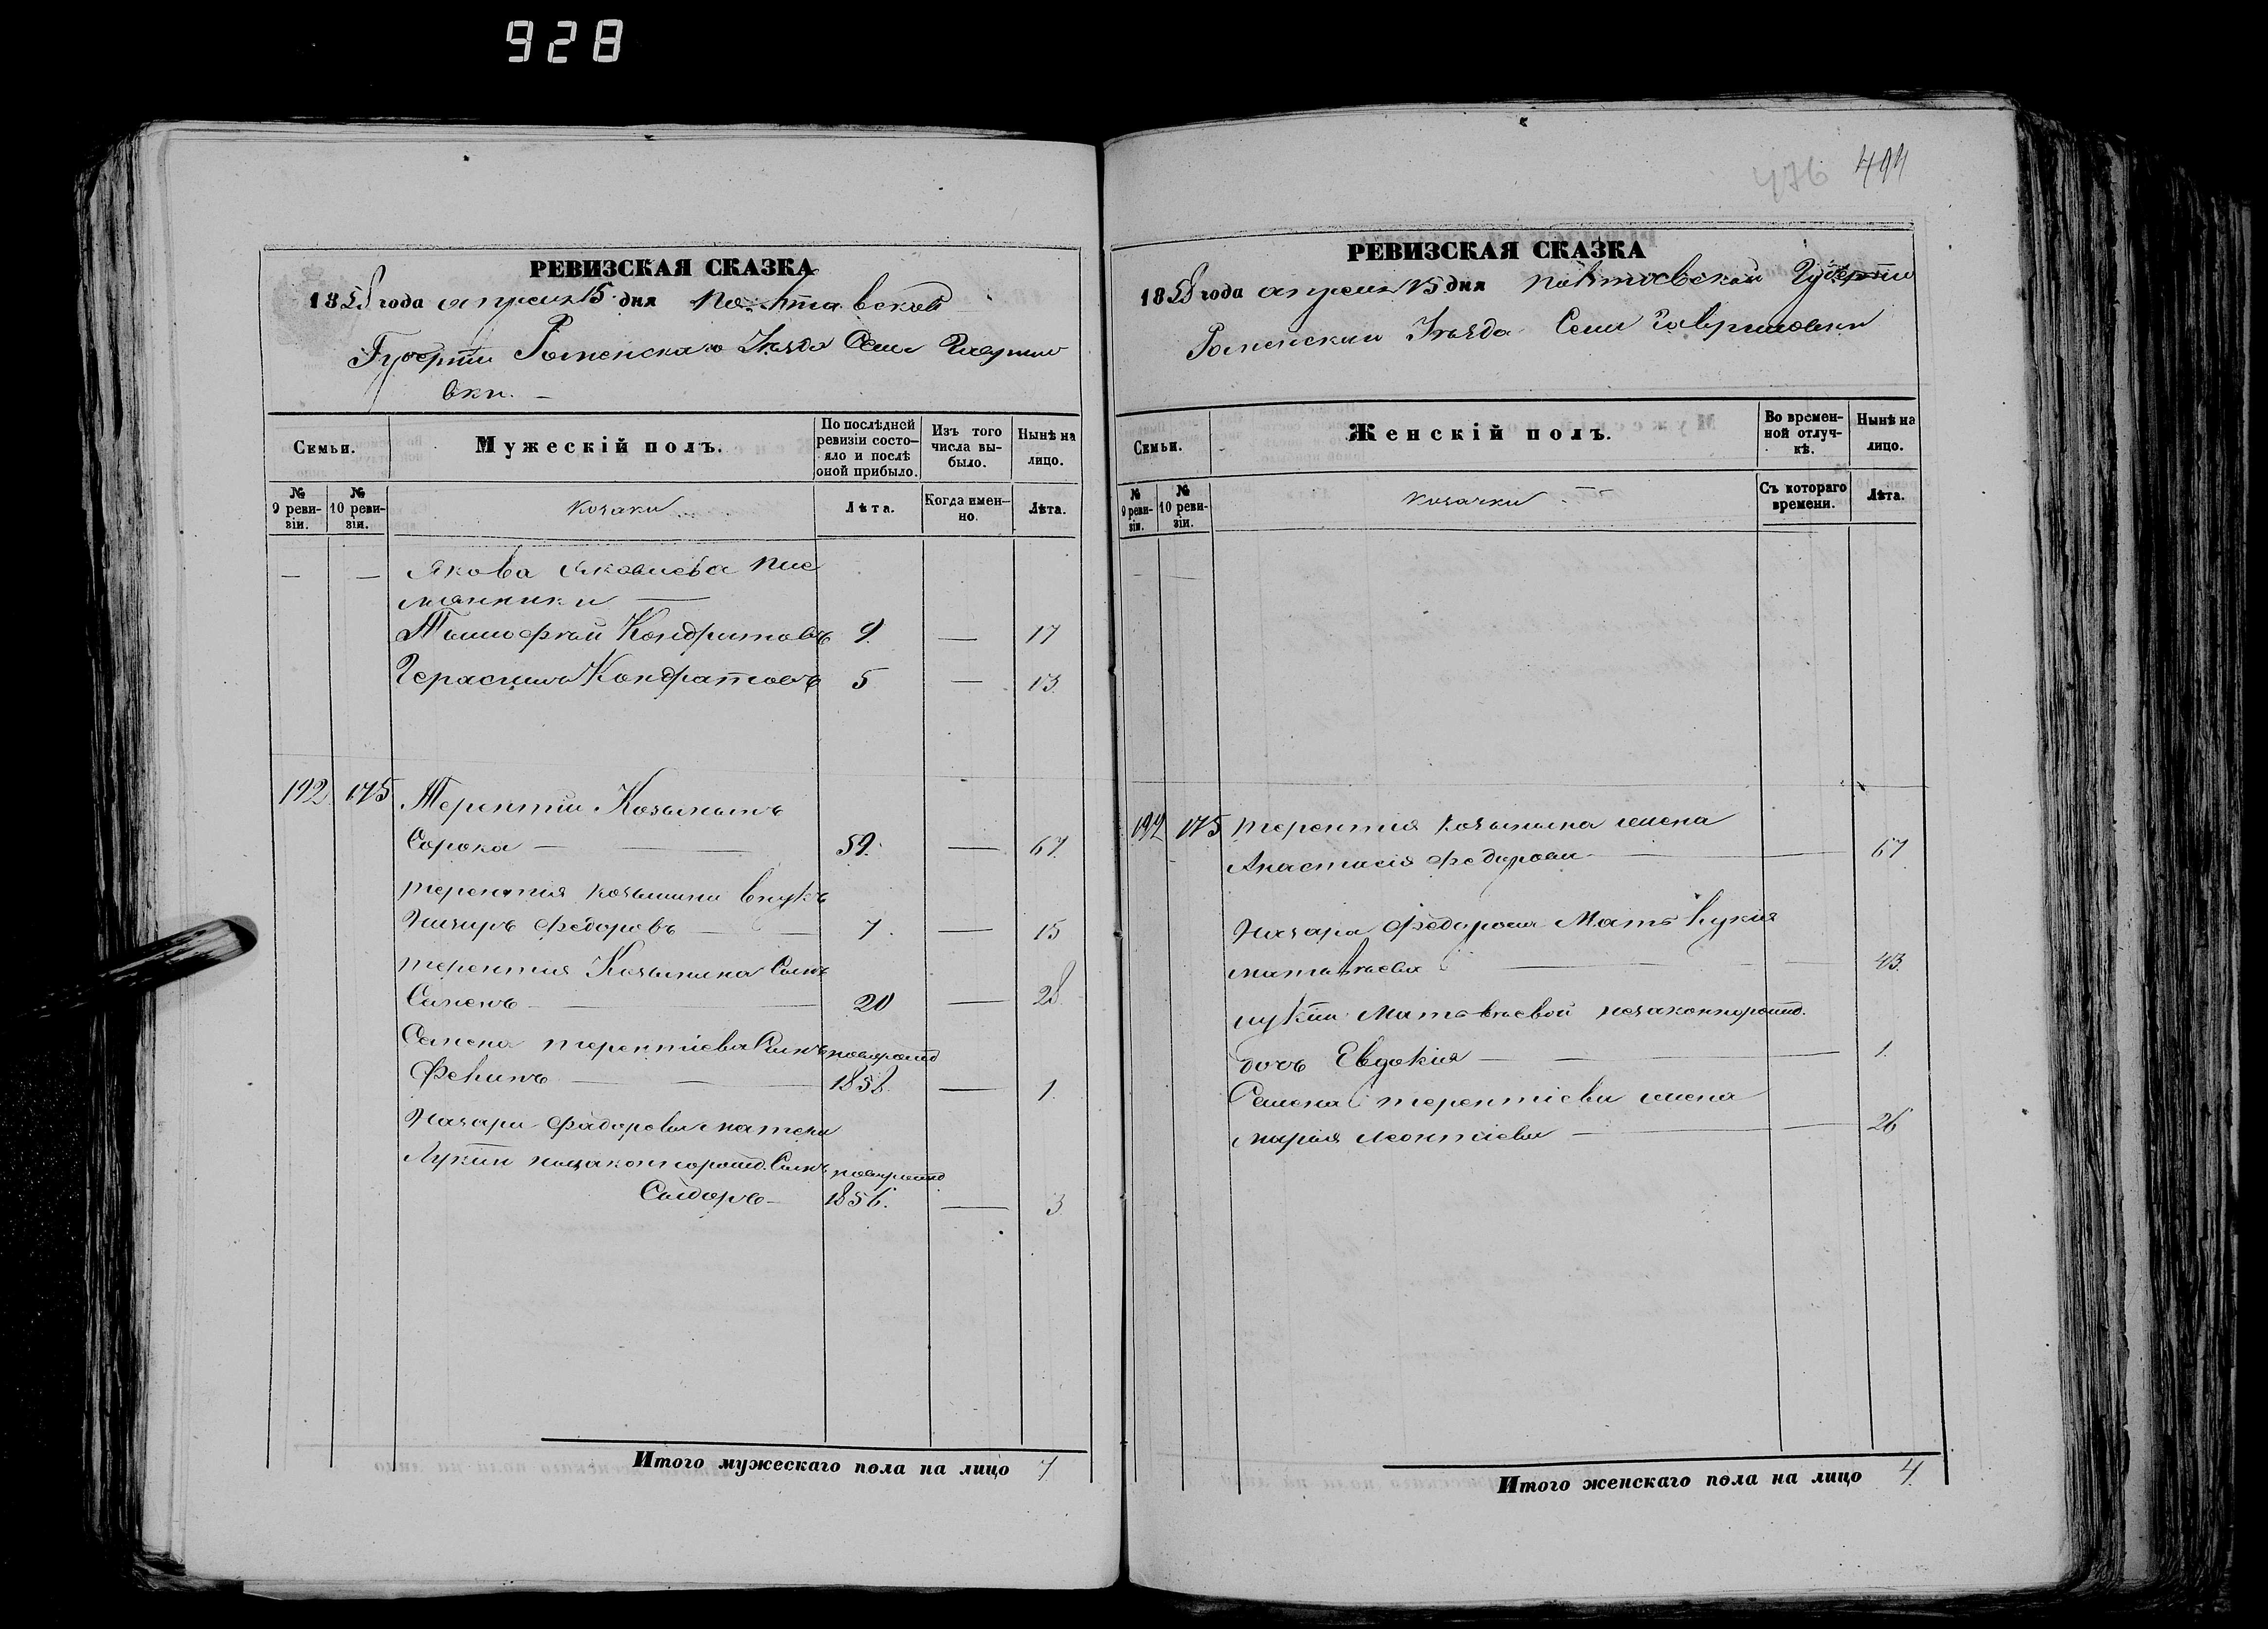 928
476 494
РЕВИЗСКАЯ СКАЗКА
1858 года апреля 15 дня Полтавской
Губерніи Роменскаго Уѣзда Села Гаврило
вки.
Семьи.
Мужескій полъ.
По послѣдней ревизіи состояло и послѣ оной прибыло.
Изъ того числа выбыло.
Нынѣ на лицо.
№ 9 ревизіи.
№ 10 ревизіи.
козаки
Лѣта.
Когда именно.
Лѣта.
— — Якова Яковлева пле
мянники —
Тимофѣй Кондратовъ 9. — 17
Герасимъ Кондратовъ 5 — 13.
192 175 Терентій Козьминъ
Сорока — 59. — 67.
терентія козьмина внукъ
Назаръ федоровъ — 7. — 15
терентія Козьмина Сынъ
Семенъ — 20 — 28.
Семена терентіева Сынъ новорожд
Феликъ — 1858 — 1.
Назара федорова матери
Лукіи незаконнорожд. Сынъ новорожд
Сидоръ — 1856. — 3
Итого мужескаго пола на лицо 7
РЕВИЗСКАЯ СКАЗКА
1858 года апреля 15 дня Полтавской Губерніи
Роменскаго Уѣзда Села Гавриловки
Семьи.
Женскій полъ.
Во временной отлучкѣ.
Нынѣ на лицо.
№ 9 ревизіи.
№ 10 ревизіи.
козачки
Съ котораго времени.
Лѣта.
192 175 терентія козьмина жена
Анастасія федорова — — 67
Назара федорова Мать Лукія
матвѣева — — 43.
лукіи Матвѣевой незаконнорожд.
дочь Евдокія — — 1.
Семена терентіева жена
марія леонтіева — — 26
Итого женскаго пола на лицо 4.